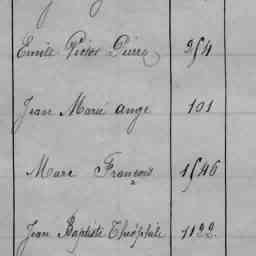 Emile Victor Pierre 254
Jean Marie Ange 101
Marc François 1546
Jean Baptiste Théophile 1122